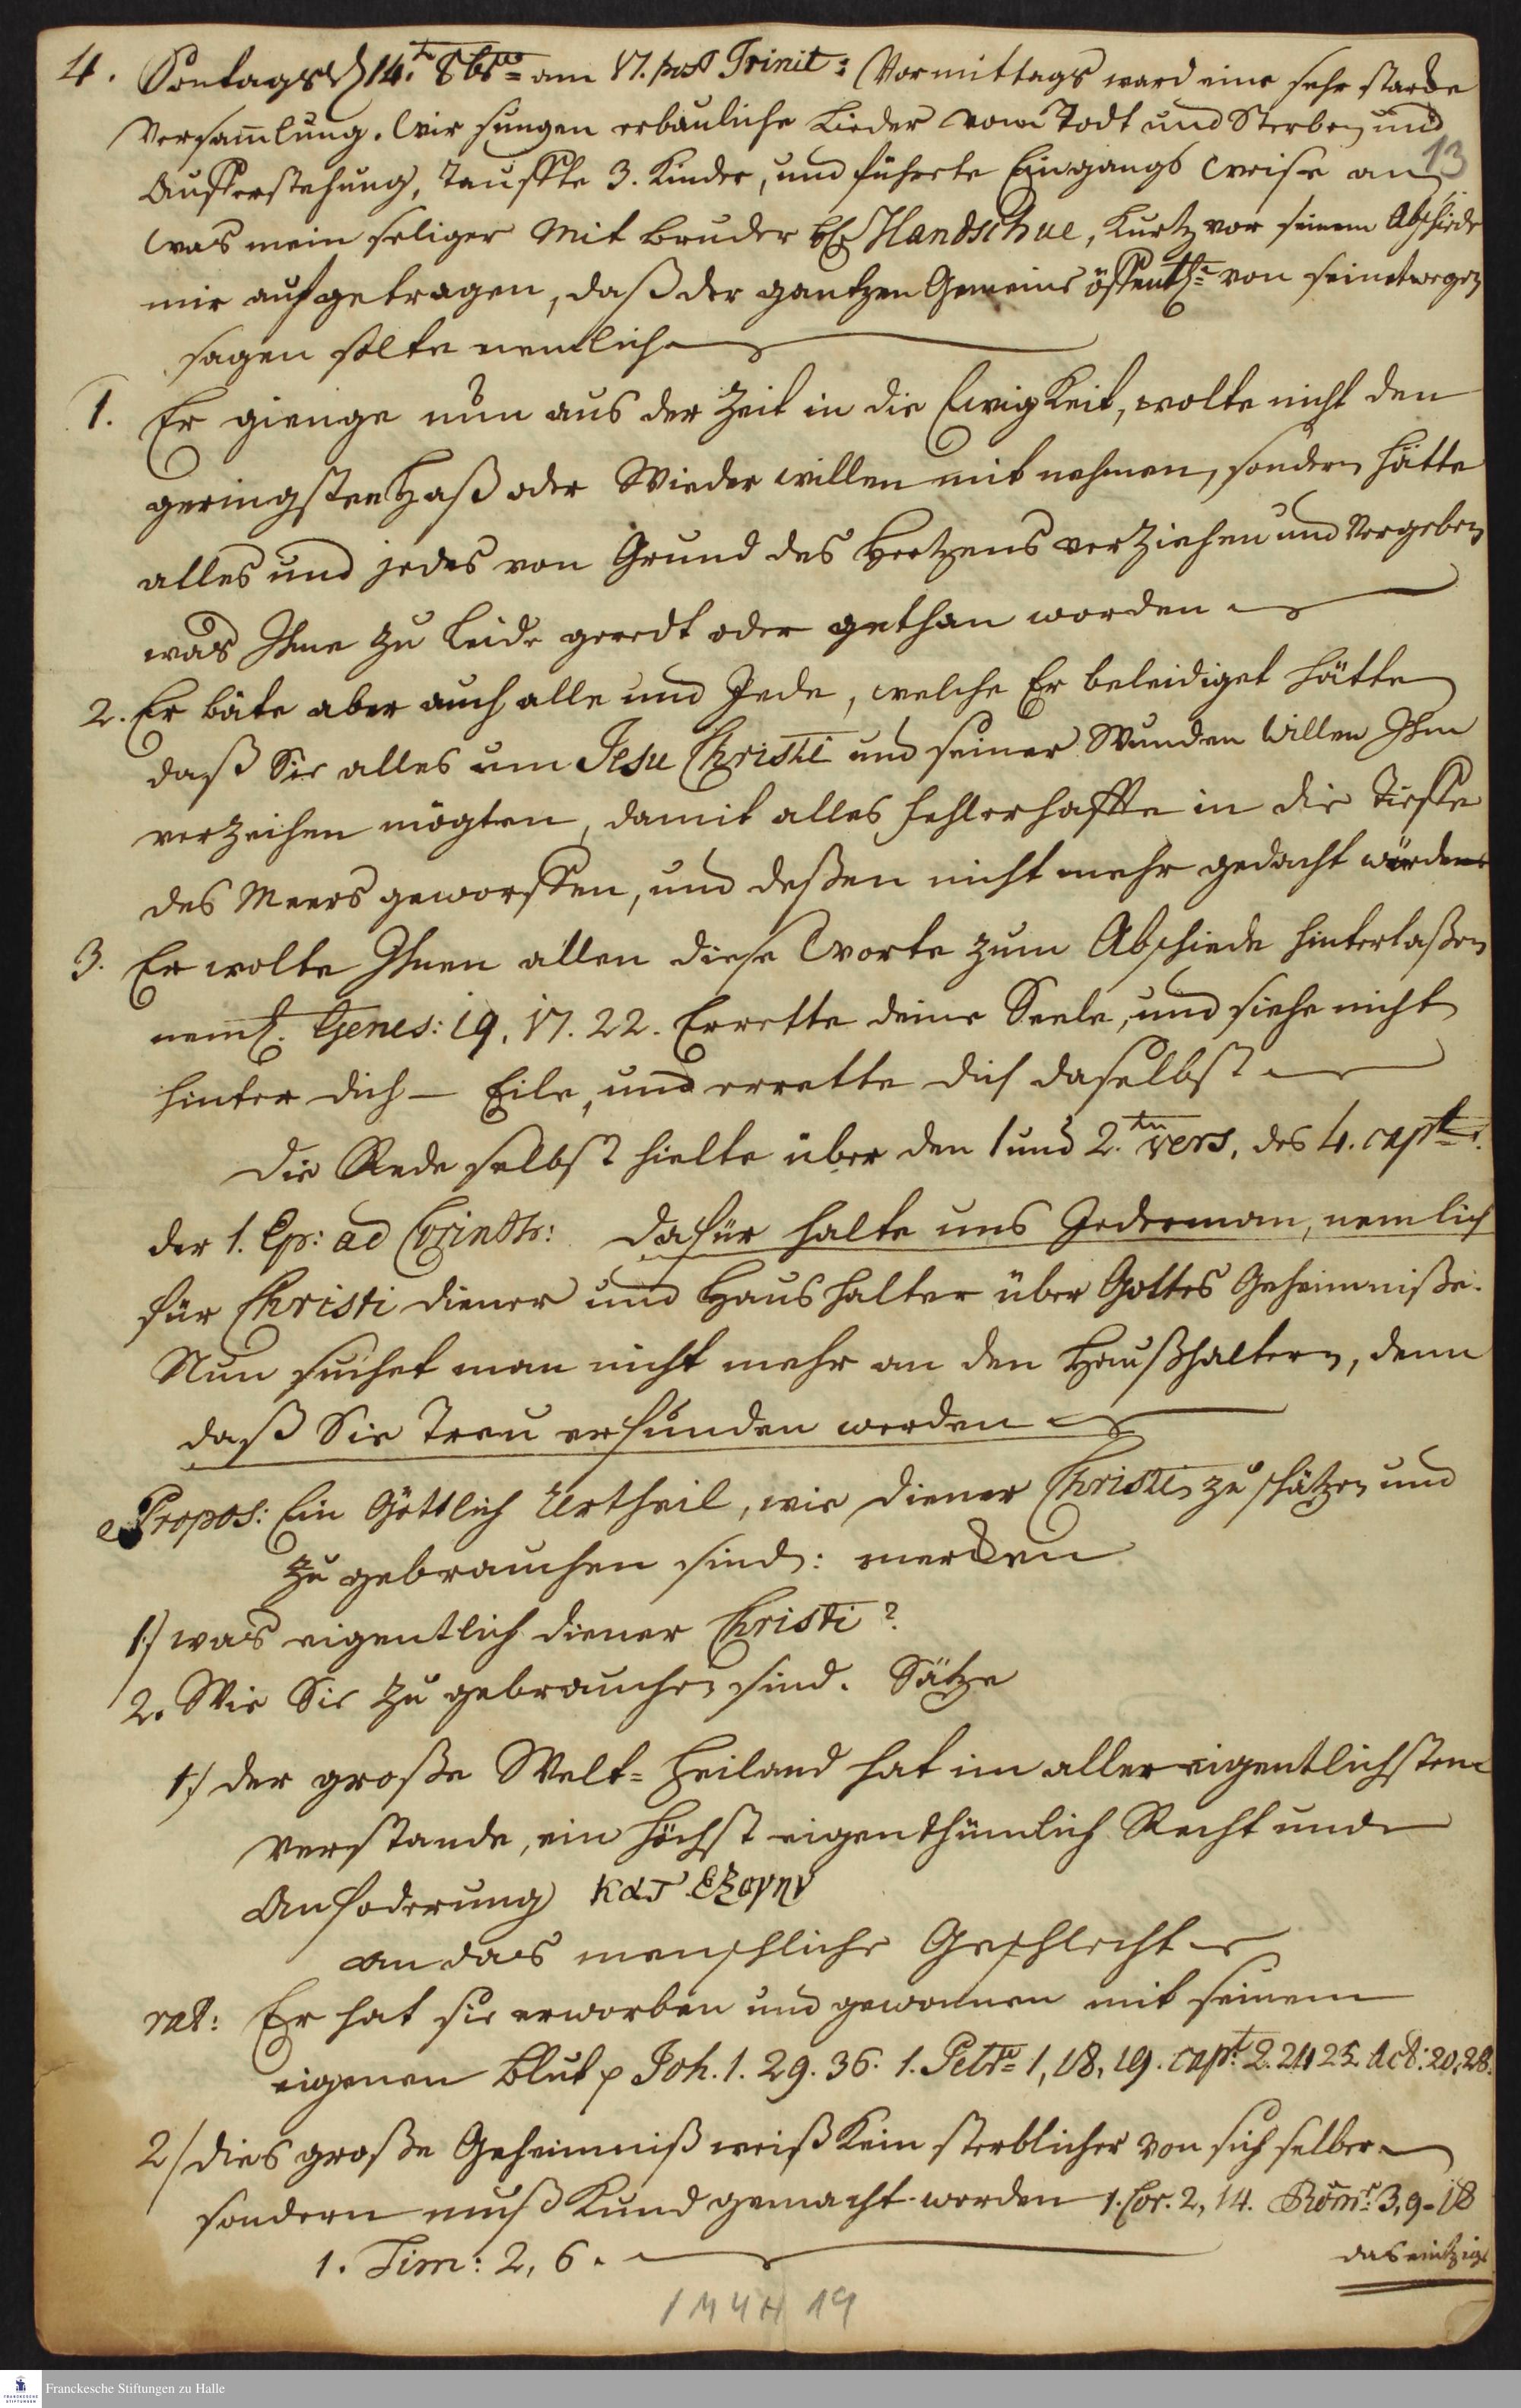 4. Sontags d. 14.t 8br= am 17. post Trinit: Vormittags ward eine sehr starcke
13
Versam̄lung. Wir sungen erbauliche Lieder vom Todt und Sterben und
Aufferstehung, Tauffte 3. Kinder, und führete Eingangs Weise an
was mein seliger Mit Bruder H. Handschue, kurtz vor seinem Abschiede
mir aufgetragen, daß der gantzen Gemeine öffentl: von seinetwegen
sagen solte nemlich
1. Er gienge nun aus der Zeit in die Ewigkeit, wolte nicht den
geringsten Haß oder Wiederwillen mit nehmen, sondern hätte
alles und jedes von Grund des Hertzens verziehen und Vergeben
was Ihme zu Leide geredt oder gethan worden
2. Er bäte aber auch alle und Jede, welche Er beleidiget hätte
daß Sie alles um Jesu Christi und seiner Wunden Willen Ihm
verzeihen mögten, damit alles fehlerhaffte in die Tieffe
des Meers geworffen, und deßen nicht mehr gedacht würde
3. Er wolte Ihnen allen diese Worte zum Abschiede hinterlaßen
neml. Genes: 19, 17. 22. Errette deine Seele, und siehe nicht
hinter dich – Eile, und errette dich daselbst
Die Rede selbst hielte über den 1 und 2.tn vers, des 4. capt.
der 1. Ep: ad Corinth: Dafür halte uns Jederman, nemlich
für Christi diener und Haushalter über Gottes Geheimniße.
Nun suchet man nicht mehr an den Haußhaltern, denn
daß Sie Treu erfunden werden
Propos: Ein Göttlich Urtheil, wie diener Christi zu schätzen und
zu gebrauchen sind: mercken
1) was eigentlich diener Christi?
2. Wie Sie zu gebrauchen sind. Sätze
1) der große Welt=Heiland hat im aller eigentlichsten
Verstande, ein höchst eigenthümlich Recht und
Anfoderung κατ εξοχην
an das menschliche Geschlecht
rat: Er hat sie erworben und gewonnen mit seinem
eigenen Blut p Joh. 1. 29. 36. 1. Petr= 1, 18, 19. capt. 2. 24 25. Act: 20, 28.
2/ dies große Geheimniß weiß kein sterblicher von sich selber
sondern muß Kund gemacht werden 1. Cor. 2, 14. Röm: 3, 9-18
1. Tim: 2, 6.
das eintzige
1 M 4 H 19
Franckesche Stiftungen zu Halle